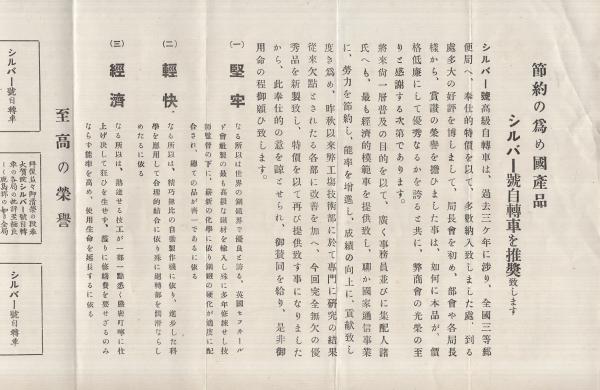 節約の爲め國產品
シルバー號自轉車を推奬致します
シルバー號高級自轉車は、過去三ケ年に涉り、全國三等郵
便局へ、奉仕的特價を以て、多數納入致しました處、到る
處多大の好評を博しまして、局長會を初め、部會や各局長
樣から、賞讚の榮譽を擔ひました事は、如何に本品が、價
格低廉にして優秀なるかを誇ると共に、弊商會の光榮の至
りと感謝する次第であります。
將來尙一層普及の目的を以て、廣く事務員並びに集配人諸
氏へも、最も經濟的模範車を提供致し、聊か國家通信事業
に、勞力を節約し、能率を增進し、成績の向上に、貢獻致し
度き爲め、昨秋以來弊工場技術部に於て專門に硏究の結果
從來欠點とされたる各部に改善を加へ、今回完全無欠の優
秀品を新製致し、特價を以て再び提供致す事になりました
から、此奉仕的の意を諒とせられ、御贊同を給り、是非御
用命の程御願ひ致します。
(一) 堅牢
なる所以は世界の鋼鐵界で優良と誇る、英國セフヰール
ド會社製の最も高級な鋼材を輸入し殊に多年修練せし技
師監督の下に、嶄新の化學に依り鋼鐵の硬化が適度に配
合され、總ての品が齊一であるに依る
(二) 輕快
なる所以は、精巧無比の自動製作機に依り、進步した科
學を應用して合理的結合に依り殊に廻轉部を圓滑ならし
めたるに依る
(三) 經濟
なる所以は、熟達せる技工が一部一點悉く緻密叮寧に仕
上げ決して狂ひを生せず、濫りに修繕費を要せざるのみ
ならず能率を高め、使用生命を延長するに依る
至高の榮譽
シルバー號自轉車
拜啓益々御淸榮の段奉
大賀候シルバー號自轉
車の各局の批評至極良
シルバー號自轉車